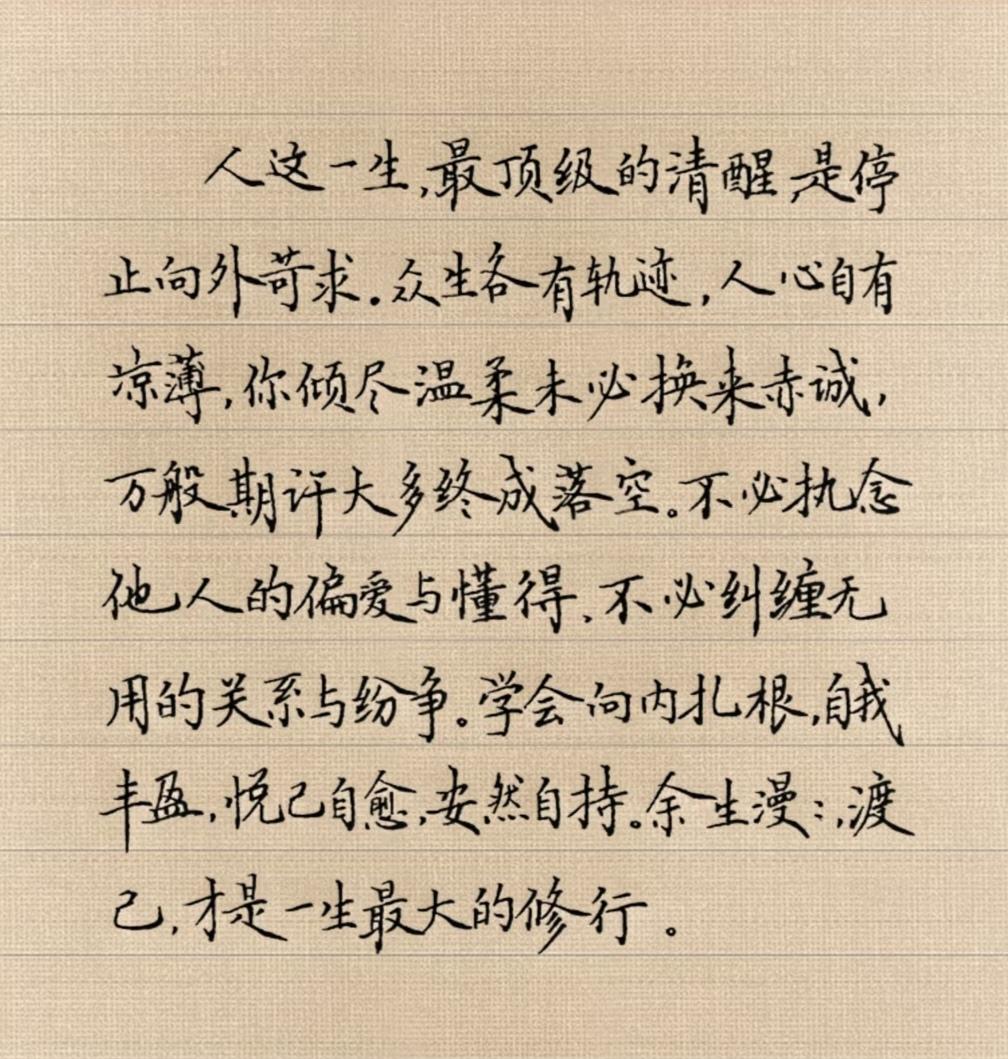 人这一生,最顶级的清醒,是停
止向外苛求.众生各有轨迹,人心自有
凉薄,你倾尽温柔未必换来赤诚,
万般期许大多终成落空。不必执念
他人的偏爱与懂得、不必纠缠无
用的关系与纷争。学会向内扎根,自我
丰盈,悦己自愈,安然自持。余生漫:,渡
己,才是一生最大的修行。